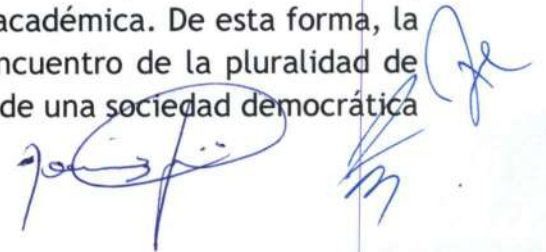 académica. De esta forma, la
ncuentro de la pluralidad de
de una sociedad democrática